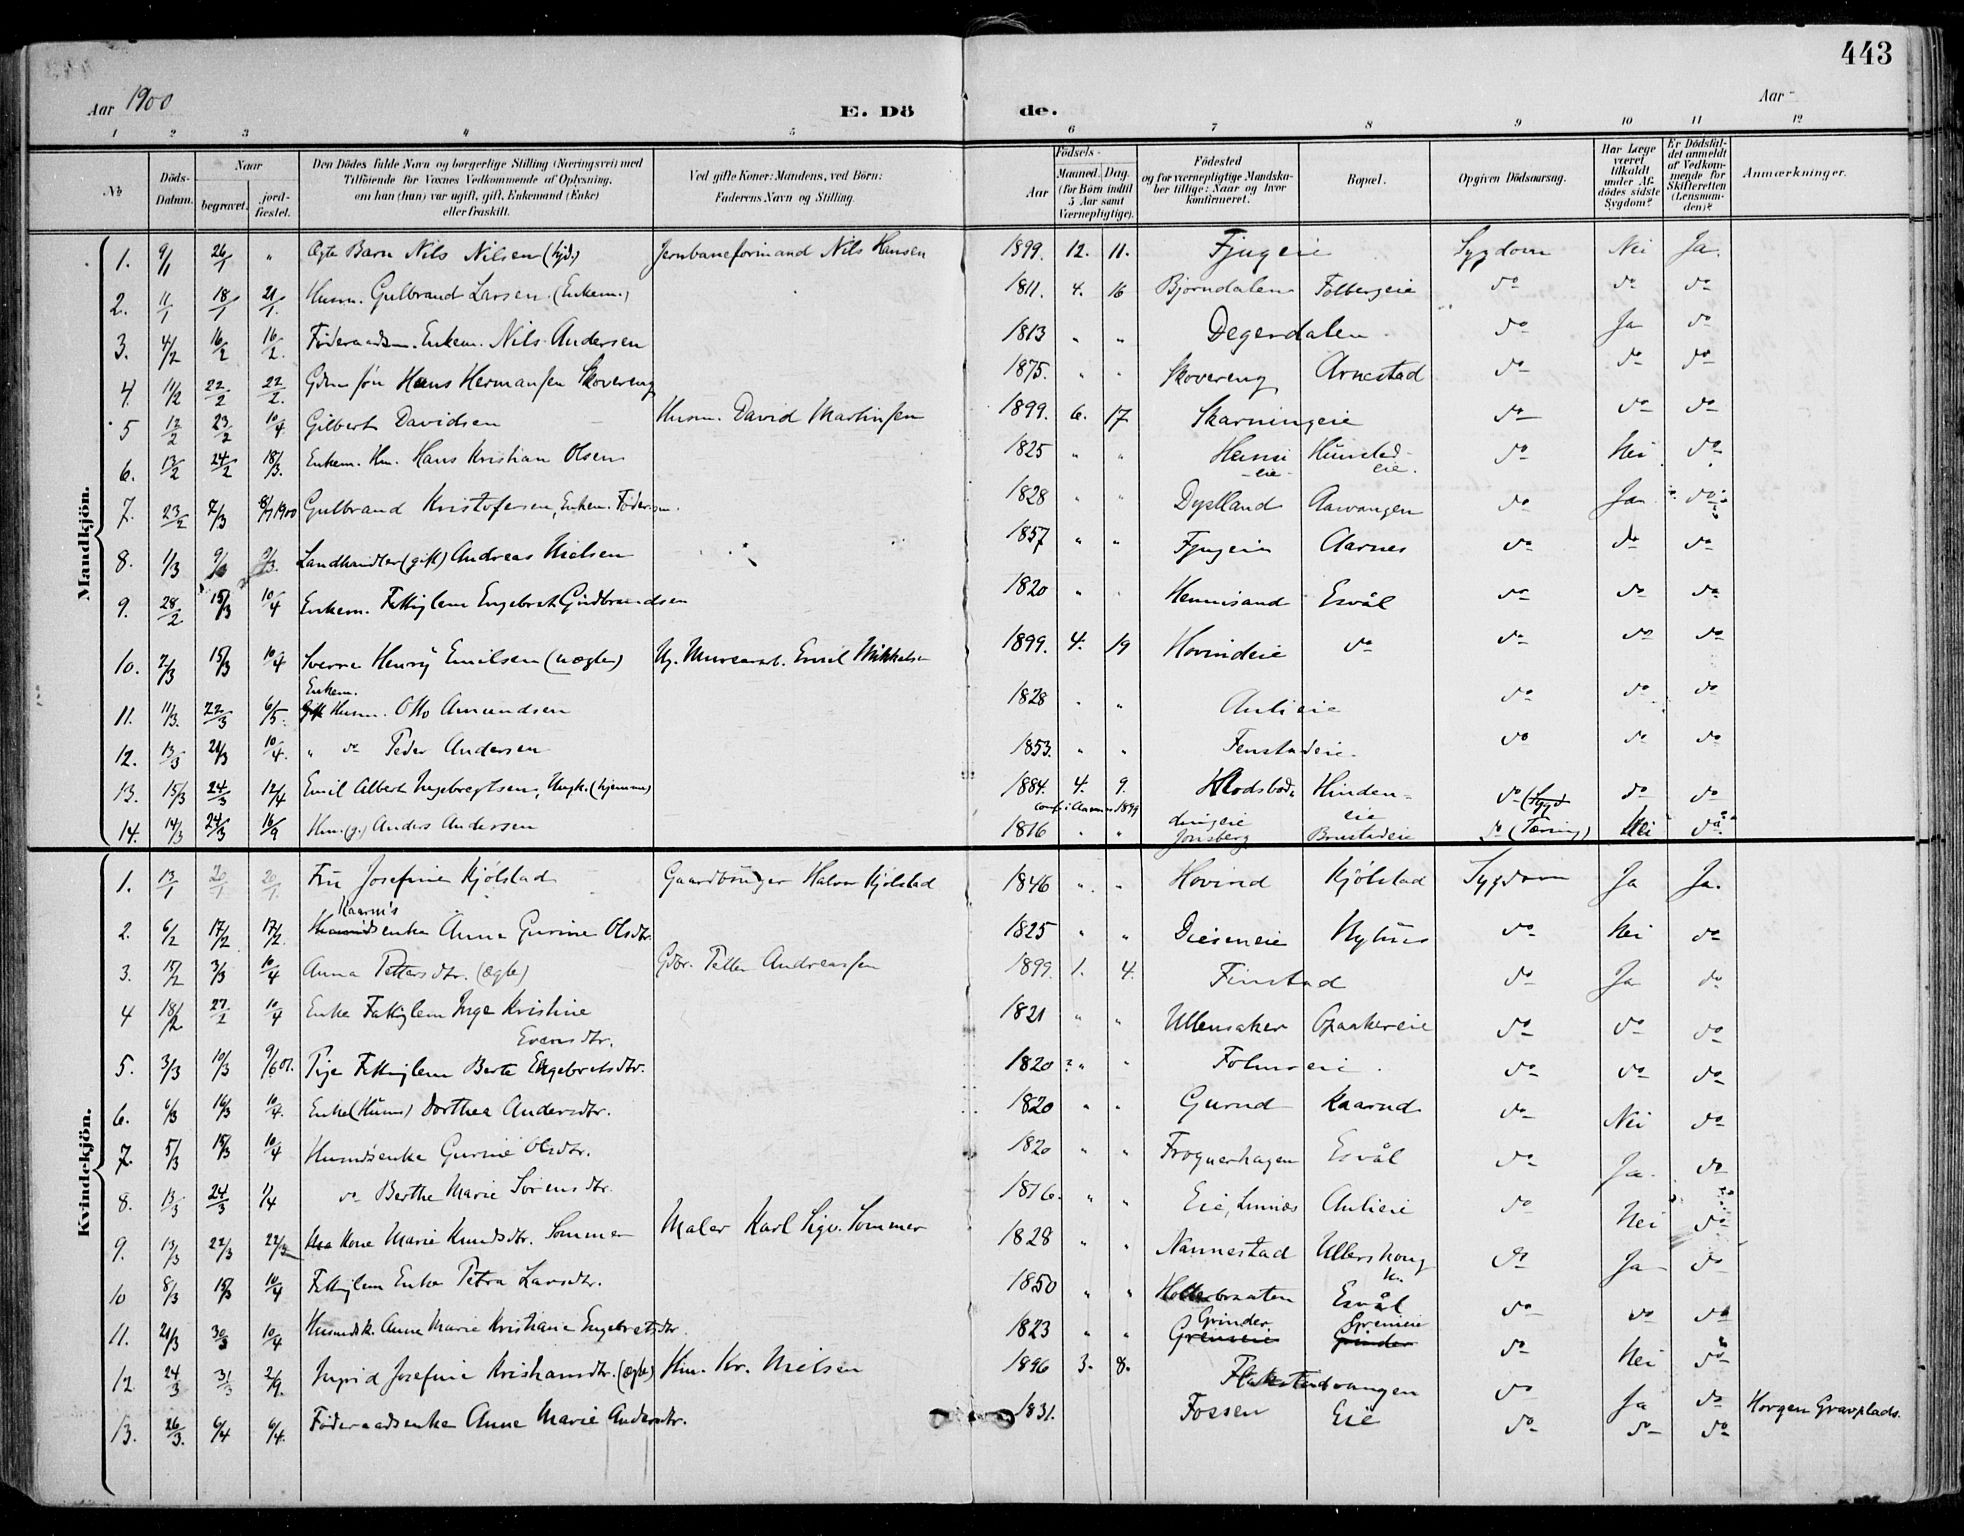 443
Aar 1900 E. Dö de. Aar
1 2 3 4 5 6 7 8 9 10 11 12
No
Döds-Datum.
Naar
begravet.
jord-fæstet.
Den Dödes fulde Navn og borgerlige Stilling (Næringsvei) med Tilföiende for Voxnes Vedkommende af Oplysning, om han (hun) var ugift, gift, Enkemand (Enke) eller fraskilt.
Ved gifte Koner: Mandens, ved Börn: Faderens Navn og Stilling.
Födsels-
Aar
Maaned. Dag.
(for Börn indtil 5 Aar samt Værnepligtige).
Födested og for værnepligtige Mandskaber tillige: Naar og hvor konfirmeret.
Bopæl.
Opgiven Dödsaarsag.
Har Læge været tilkaldt under Afdödes sidste Sygdom?
Er Dödsfaldet anmeldt af Vedkommende for Skifteretten (Lensmanden)?
Anmærkninger.
Mandkjön.
1. 9/1 26/1 " Ægte Barn Nils Nilsen (hjd.) Jernbaneformand Nils Hansen 1899. 12. 11. Fjugeie Sygdom Nei Ja.
2. 11/1 18/1 21/1. Husm. Gulbrand Larsen. (Enkem.) 1811. 4. 16 Bjorndalen Folbergeie do do do
3. 4/2 16/2 16/2. Föderaadsm. Enkem. Nils Andersen 1813 " " Degerdalen do Ja do
4. 11/2 22/2 22/2. Gdm sön Hans Hermansen Skovereng 1875. " " Skovereng Arnestad do do do
5 12/2 23/2 10/4 Gilbert Davidsen Husm. David Martinsen 1899. 6. 17 Skarningeie do do do
6. 13/2 24/2 18/3. Enkem. Hm. Hans Kristian Olsen 1825 " " eie Hunstad-eie. do Nei do
7. 23/2 7/3 8/7 1900 Gulbrand Kristofersen, Enkem. Föderm. 1828 " " Dystland Aarvangen do Ja do
8. 1/3 9/3 9/3. Landhandler (gift) Andreas Nielsen 1857 " " Fjugeie Aarnes do do do
9. 28/2 15/3 10/4 Enkem. Fattiglem Engebret Gudbrandsen 1820 " " Hennisand Esvål do do do
10. 7/3 15/3 10/4 Sverre Henry Emilsen (uægte) Ug. Murerarb. Emil Mikkelsen 1899. 4. 19 Hovindeie do do do do
Enkem.
11. 11/3. 22/3 6/5. Gift Husm. Otto Amundsen 1828 " " Aulieie do do do
12. 13/3 21/3 10/4. " do Peder Andersen 1853. " " Fenstadeie. do do do
13. 15/3 24/3 12/4 Emil Albert Ingebregtsen, Ungk. (hjemme) 1884. 4. 9. Hinden-eie do do do
conf. i Aarnes 1899
14. 14/3 24/3 16/9 Hm. (g.) Anders Andersen 1816 " " Jonsberg Brustadeie do (Tæring) Nei do
Kvindekjön.
1. 13/1 20/1 20/1. Fru Josefine Kjölstad Gaardbruger Halvor Kjölstad 1846 " " Hovind Kjölstad Sygdom Ja Ja.
Kaarm's
2. 6/2 17/2 17/2. Husmandsenke Anna Gurine Olsdtr. 1825 " " Dieseneie Nyhus do Nei do
3. 15/2 3/3 10/4 Anna Pettersdtr. (ægte) Gdbr. Petter Andreassen 1899. 1. 4. Finstad do Ja do
4 18/2 27/2 10/4 Enke Fattiglem Inge Kristine 1821 " " Ullensaker Opaakereie do do do
Evensdtr.
5. 3/3 10/3 9/6 01. Pige Fattiglem Berte Engebretsdtr. 1820 ? " " Folmoeie do do do
6. 6/3 16/3 10/4. Enke (Husm) Dorthea Andersdtr. 1820 " " Gurud Kaarud do Nei do
7. 5/3 15/3 10/4 Husmdsenke Gurine Olsdtr. 1820 " " Frognerhagen Esvål do Ja. do
8. 13/3 24/3 1/4 do Berthe Marie Sörensdtr. 1816. " " Eie, Linnæs Aulieie do Nei do
9. 13/3 22/3 22/3 Kone Marie Knudsdtr. Sommer Maler Karl Sigv. Sommer 1828 " " Nannestad Ullershoug do Ja do
10 8/3 15/3 10/4 Fattiglem Enke Petra Larsdtr. 1850 " " Hollerbraaten Esvål do do do
11. 21/3 30/3 10/4 Husmdsk. Anne Marie Kristiane Engebretsdtr. 1823 " " Grinder Greneie do Nei do
Greneie Grinder
12. 24/3 31/3 2/9. Ingrid Josefine Kristiansdtr. (ægte) Hm. Kr. Nielsen 1896 3. 8. Flakstadvangen do Ja do
13. 26/3. 6/4 6/4. Föderaadsenke Anne Marie Andersdtr. 1831. Fossen Eie do do do Horgen Gravplads.